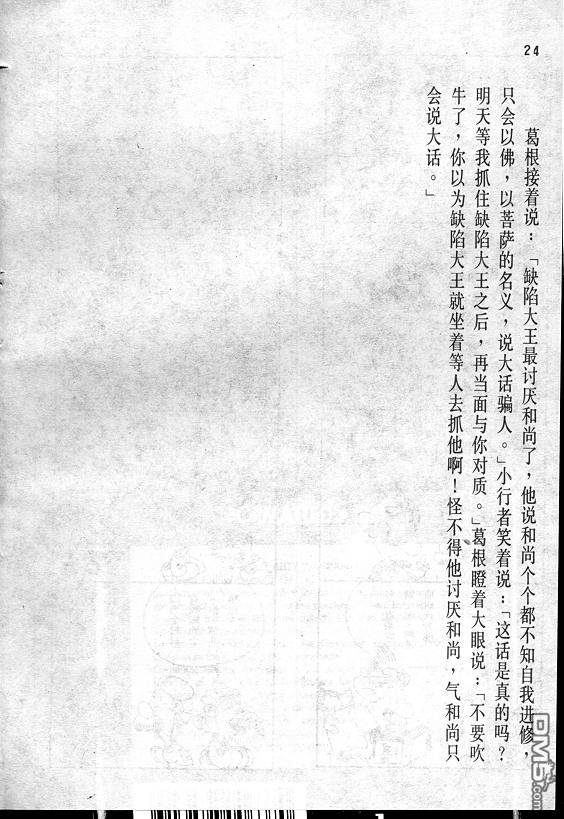 24
葛根接着说：「缺陷大王最讨厌和尚了，他说和尚个个都不知自我进修，
只会以佛，以菩萨的名义，说大话骗人。」小行者笑着说：「这话是真的吗？
明天等我抓住缺陷大王之后，再当面与你对质。」葛根瞪着大眼说：「不要吹
牛了，你以为缺陷大王就坐着等人去抓他啊！怪不得他讨厌和尚，气和尚只
会说大话。」
DM5.com